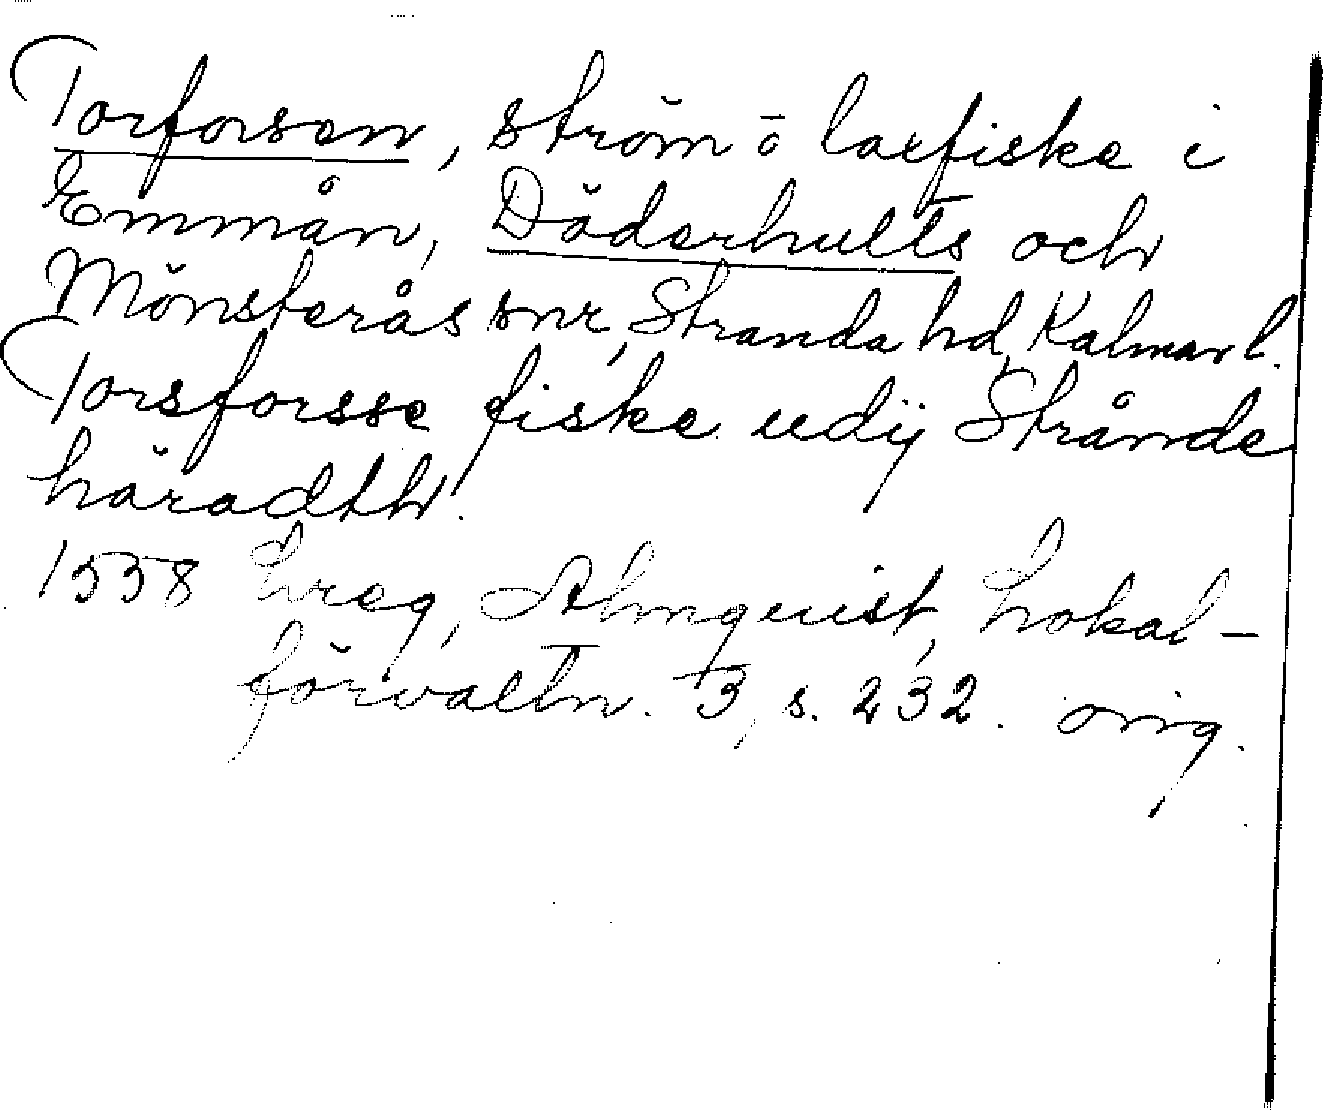 Torforsen, ström ō laxfiske i
Emmån, Döderhults och
Mönsterås snr, Stranda hd, Kalmar l.
Torsforsse fiske udij Strånde
häradth.
1558 hreg, Almquist, Lokal-
förvaltn. 3, s. 232. orig.